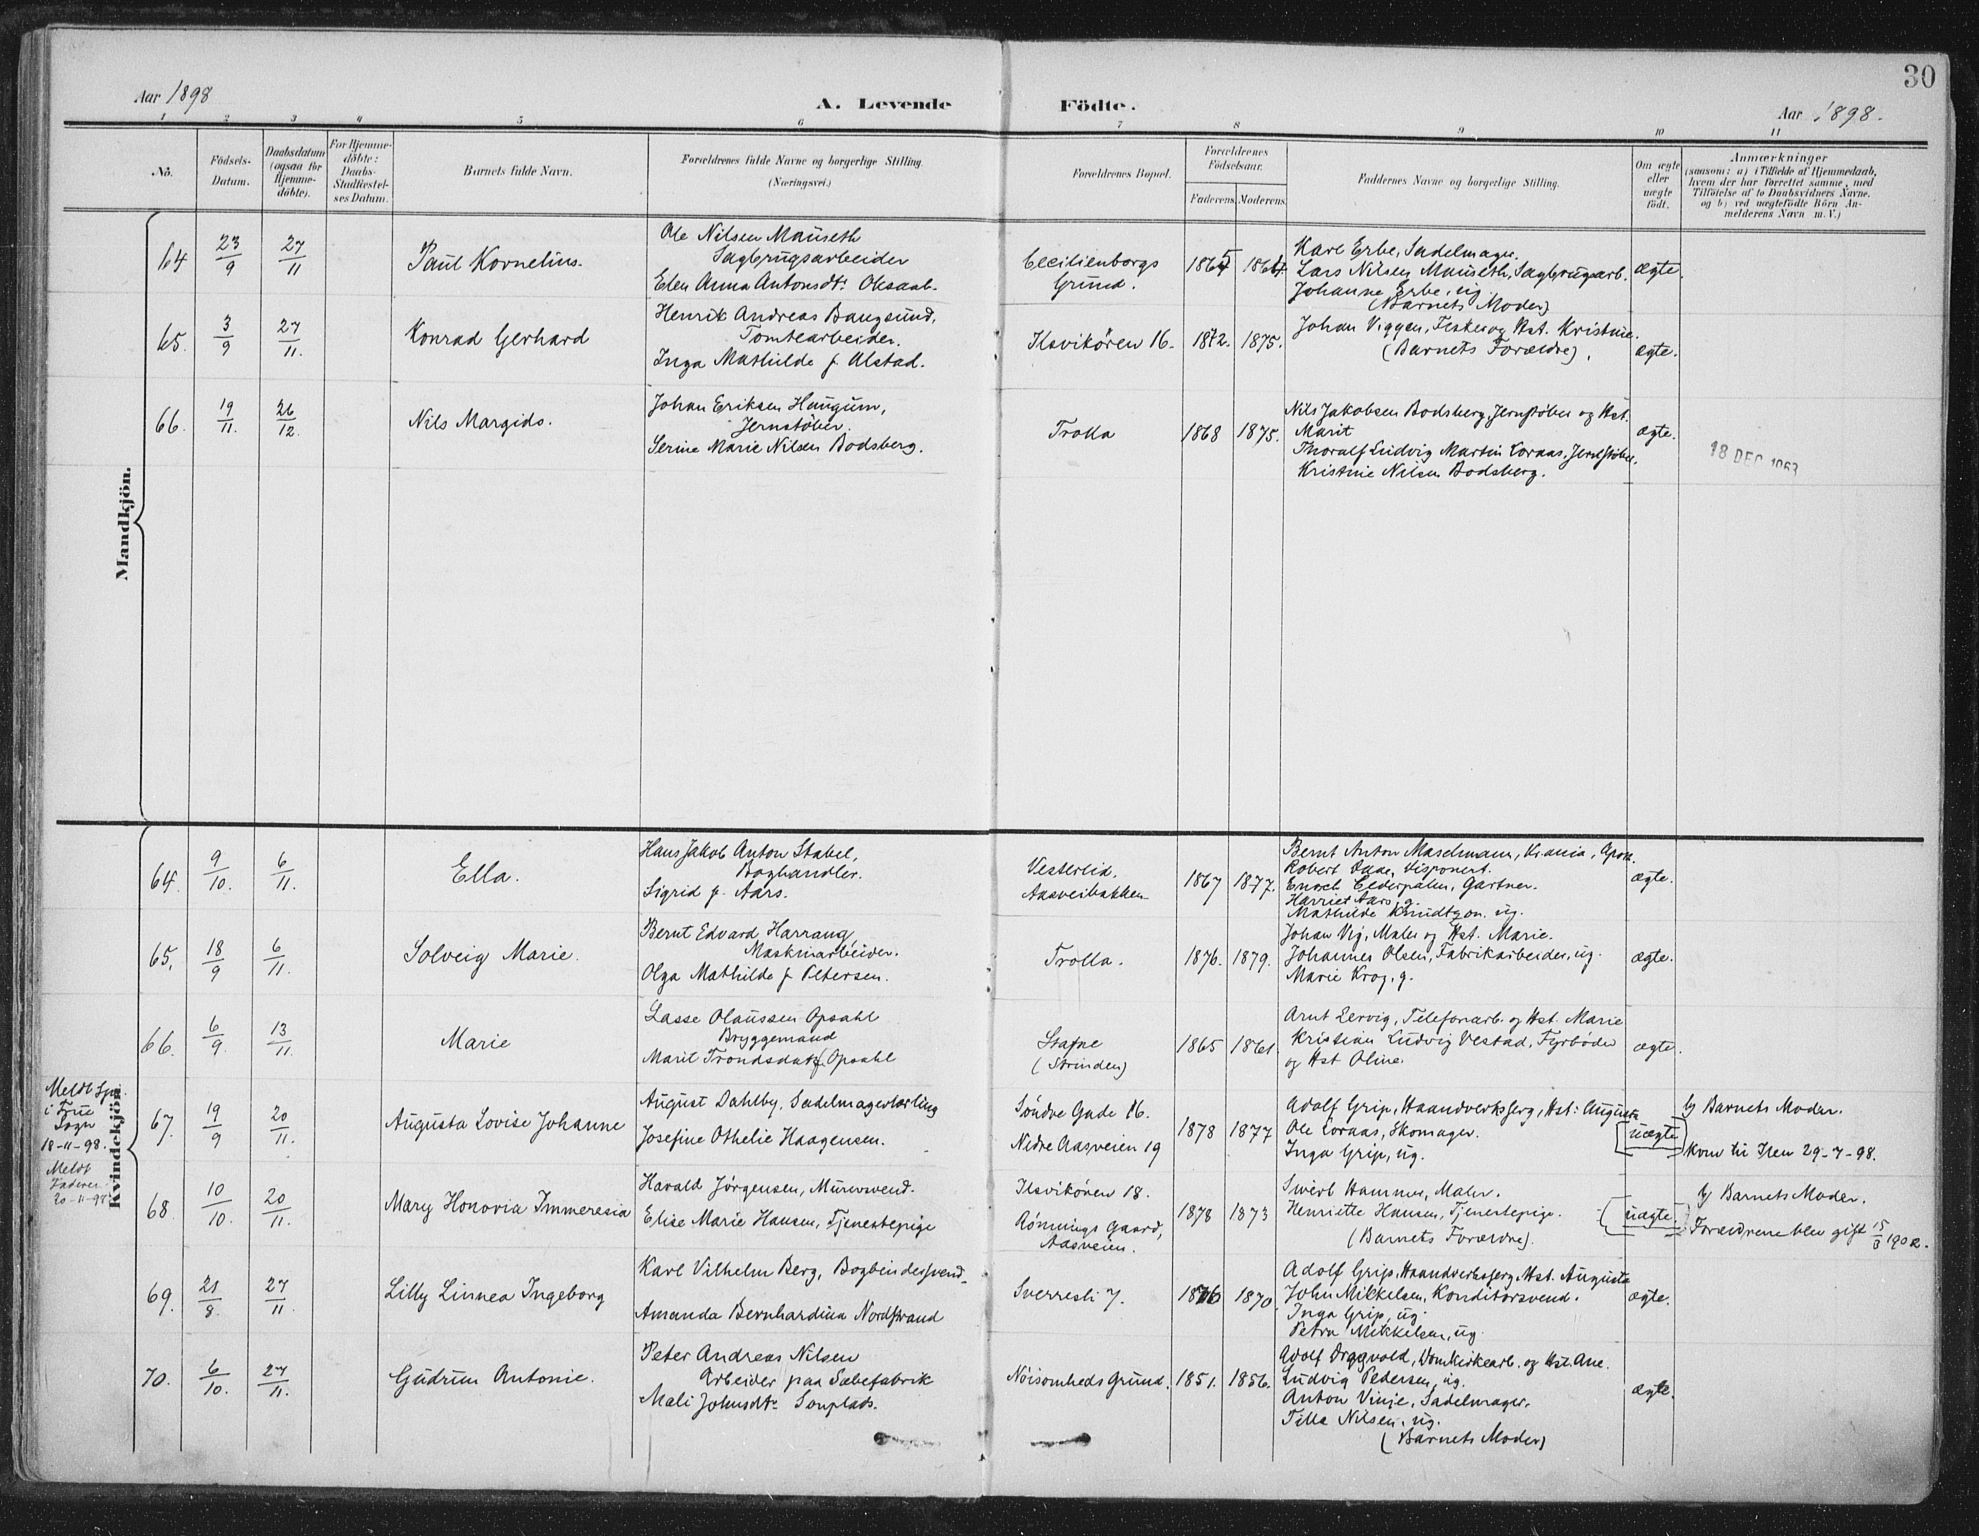 30
Aar 1898
A. Levende Födte.
Aar 1898.
1 2 3 4 5 6 7 8 9 10 11
No.
Födsels-
Datum.
Daabsdatum
(ogsaa for
Hjemme-
döbte).
For Hjemme-
döbte:
Daabs-
Stadfæstel-
ses Datum.
Barnets fulde Navn.
Forældrenes fulde Navne og borgerlige Stilling
(Næringsvei.)
Forældrenes Bopæl.
Forældrenes
Födselsaar.
Faderens Moderens
Faddernes Navne og borgerlige Stilling.
Om ægte
eller
uægte
födt.
Anmærkninger
(saasom: a) (Tilfælde af Hjemmedaab,
hvem der har forrettet samme, med
Tilföielse af to Daabsvidners Navne.
og b) ved uægtefödte Börn An-
melderens Navn m. V.)
Mandkjön.
64
23/9
27/11
Paul Kornelius.
Ole Nilsen Mauseth
Sagbrugsarbeider
Elen Anna Antonsdtr Oksaab.
Cecilienborgs
Grund.
1865 1864
Karl Erbe, Sadelmager.
Lars Nilsen Mauseth, Sagbrugsarb.
Johanne Erbe, ug.
(Barnets Moder)
ægte.
65.
3/9
27/11.
Konrad Gerhard
Henrik Andreas Bangsund,
Tomtearbeider.
Inga Mathilde f. Alstad.
Ilsvikören 16.
1872. 1875.
Johan Viggen, Fisker og Hst. Kristine.
(Barnets Forældre).
ægte.
66.
19/11.
26/12.
Nils Margido.
Johan Eriksen Haugum,
Jernstöber.
Serine Marie Nilsen Bodsberg.
Trolla
1868 1875.
Nils Jakobsen Bodsberg, Jernstöber og Hst.
Marit
Thoralf Ludvig Martin Loraas, Jernstöber,
Kristine Nilsen Bodsberg.
ægte.
18 DEC 1963
Kvindekjön.
64.
9/10.
6/11.
Ella.
Hans Jakob Anton Stabel,
Boghandler.
Sigrid f. Aars.
Vesterlid.
Aasveibakken
1867 1877.
Bernt Anton Maschmann, Krania, Apoth.
Robert Due, Disponent.
Enoch Cederpalm, Gartner.
Harriet Aars, g.
Mathilde Knudtzon. ug.
ægte.
65.
18/9
6/11.
Solveig Marie.
Bernt Edvard Harrang
Maskinarbeider.
Olga Mathilde f. Petersen.
Trolla.
1876. 1879.
Johan Vig, Maler og Hst. Marie.
Johannes Olsen, Fabrikarbeider, ug.
Marie Krog, g.
ægte.
66.
6/9.
13/11.
Marie
Lasse Olaussen Opsahl
Bryggemand
Marit Trondsdatr Opsahl
Stavne
(Strinden)
1865 1861.
Arnt Lervig, Telefonarb. og Hst. Marie
Kristian Ludvig Vestad, Fyrböder
og Hst Oline.
ægte.
Meldt Spr.
i Frue
Sogn
18-11-98.
Meldt
Faderen
20-11-98
67.
19/9
20/11.
Augusta Lovise Johanne
August Dahlby, Sadelmagerlærling
Josefine Othelie Haagensen.
Söndre Gade 16.
Nidre Aasveien 19
1878 1877
Adolf Grip, Haandverksferg, Hst: Augusta
Ole Loraas, Skomager.
Inga Grip, ug.
uægte
b) Barnets Moder.
kom til Ilen 29-7-98.
68.
10/10.
20/11.
Mary Honoria Immeresia
Harald Jörgensen, Murersvend.
Elise Marie Hansen, Tjenestepige
Ilsvikören 18.
Rönnings Gaard,
Aasveien.
1878 1873
Sivert Hammer, Maler.
Henriette Hansen, Tjenestepige.
(Barnets Forældre).
uægte.
b) Barnets Moder.
Forældrene blev gift 15/3 1902.
69.
21/8.
27/11
Lilly Linnea Ingeborg
Karl Vilhelm Berg, Bogbindersvend.
Amanda Bernhardina Nordstrand
Sverresli 7.
1876 1870.
Adolf Grip, Haandverksferg, Hst. Augusta
John Mikkelsen, Konditorsvend.
Inga Grip, ug.
Petra Mikkelsen, ug.
ægte.
70.
6/10.
27/11.
Gudrun Antonie.
Peter Andreas Nilsen
Arbeider paa Sæbefabrik
Mali Johnsdtr Sonplads.
Nöisomheds Grund.
1851. 1856.
Adolf Dragvold, Domkirkearb. og Hst. Ane.
Ludvig Pedersen, ug.
Anton Vinje, Sadelmager.
Tilla Nilsen, ug.
(Barnets Moder)
ægte.